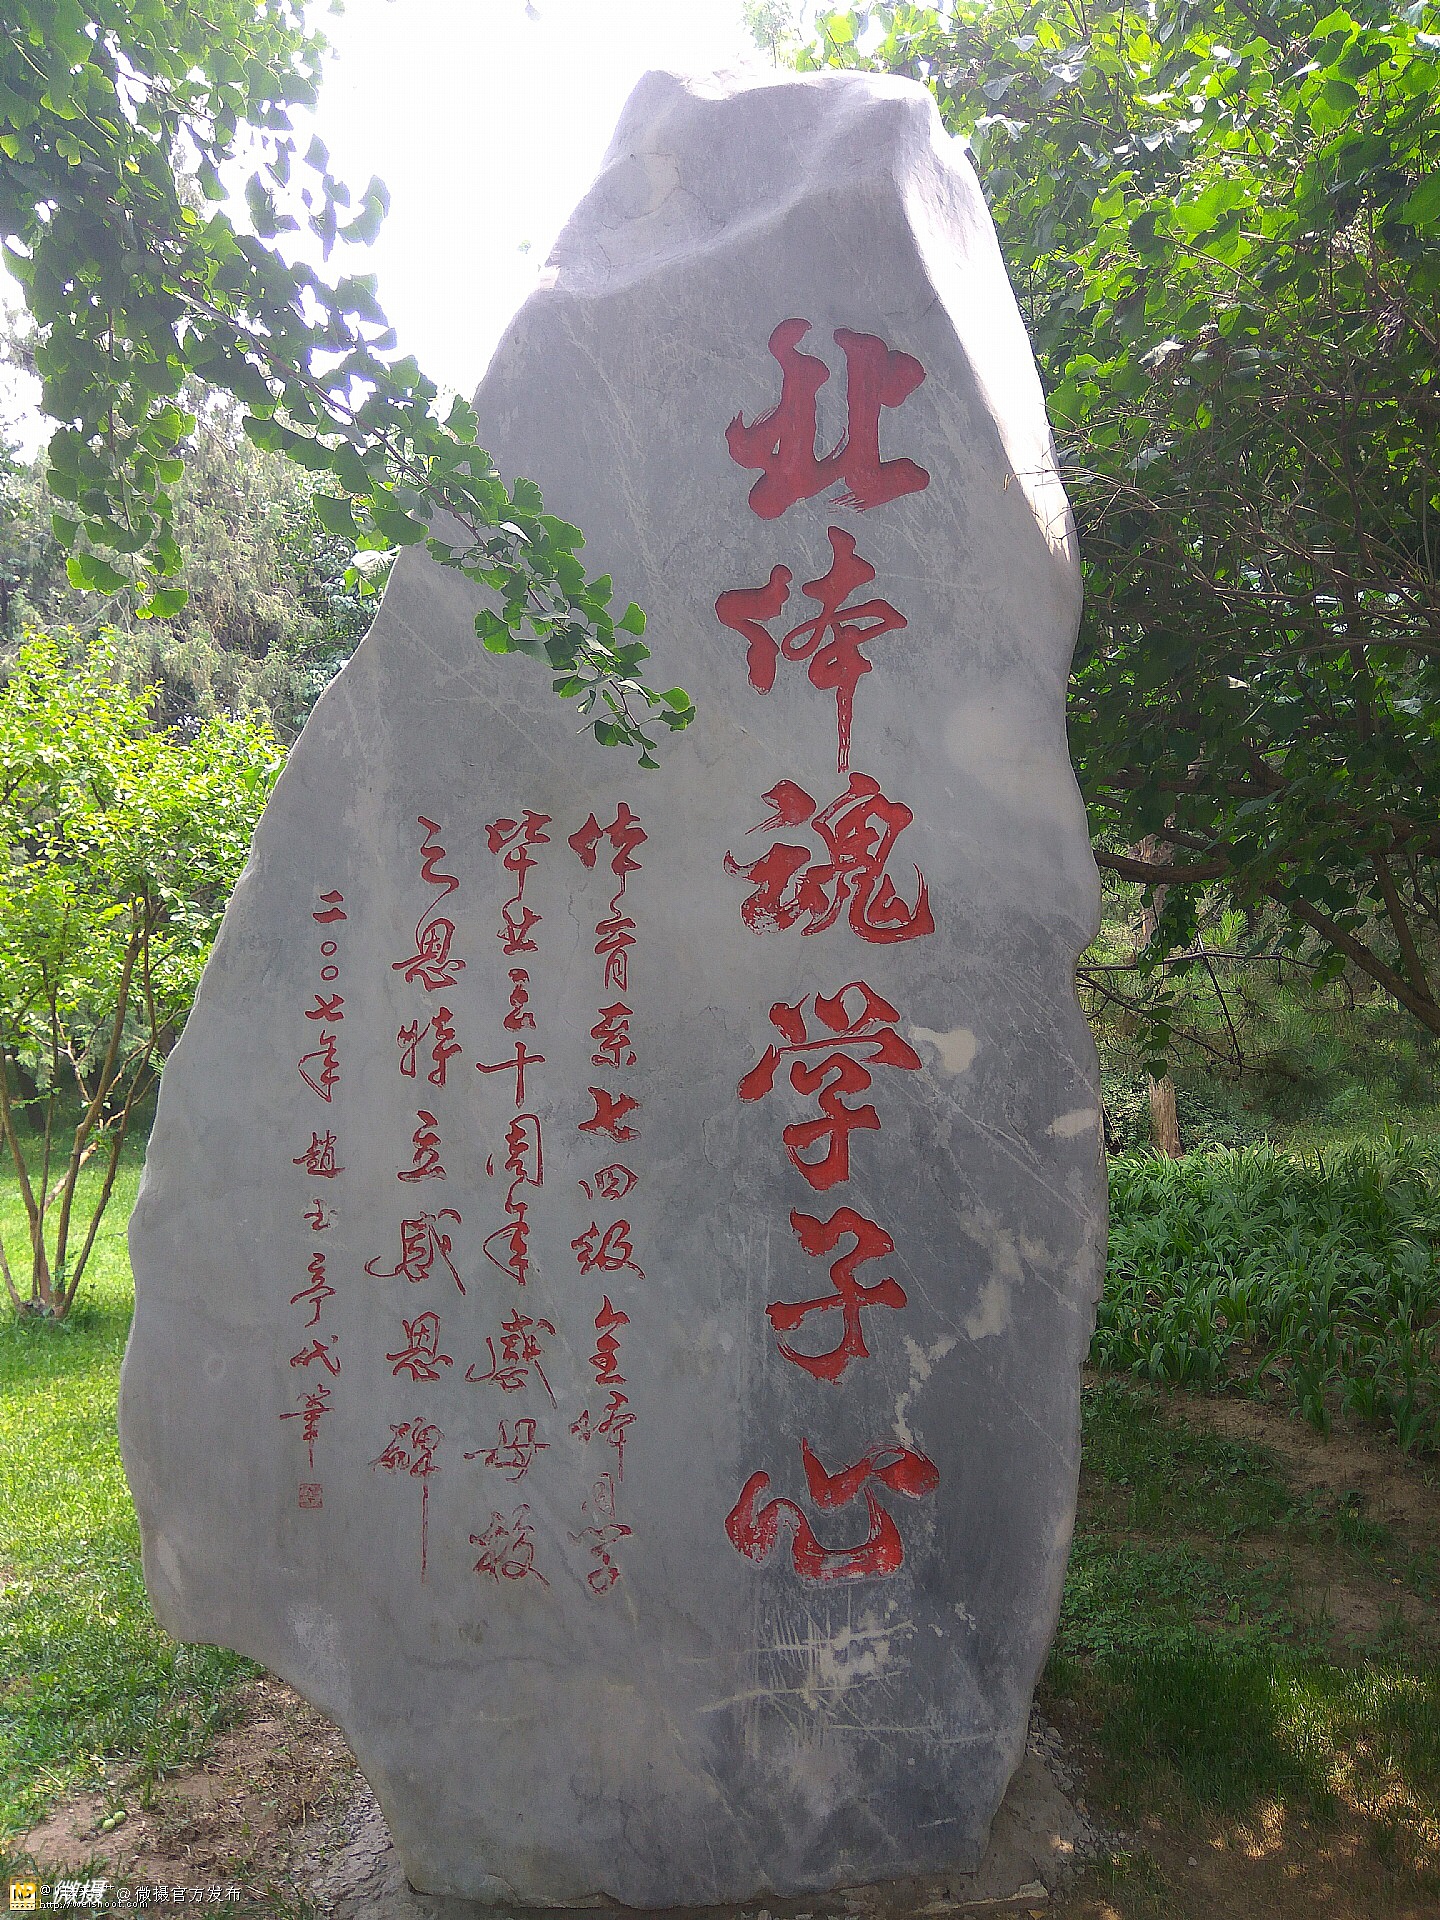 北体魂学子心
体育系七四级全体同学
毕业三十周年感母校
之恩特立感恩碑
二〇〇七年 趙玉亭代筆
微摄 @微摄官方发布
http://weishoot.com